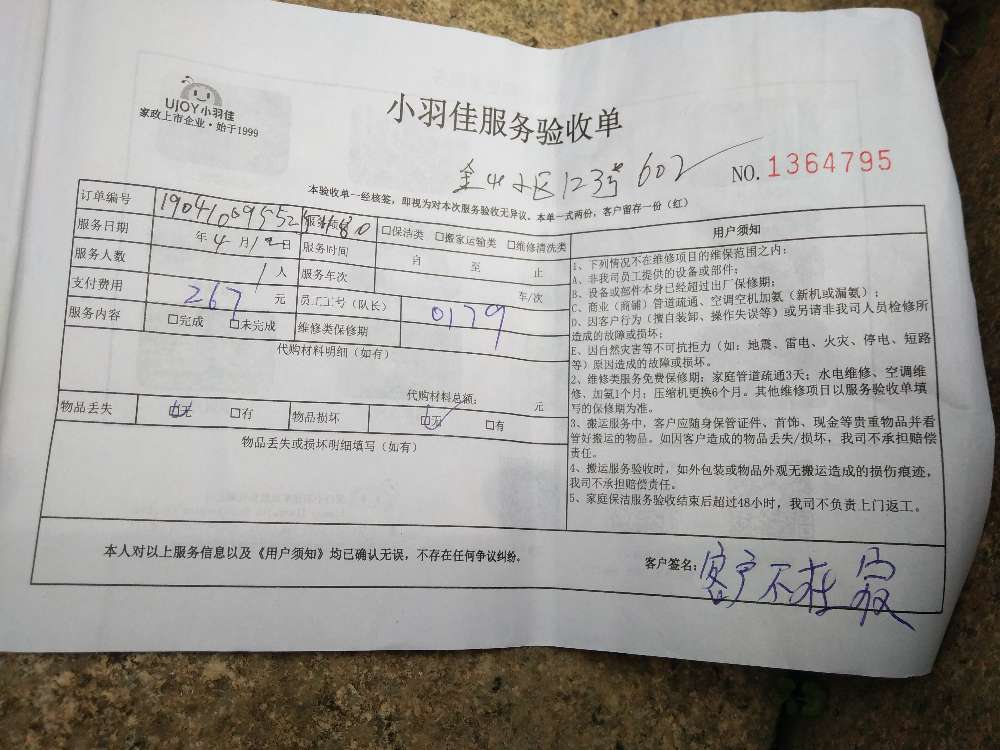 UJOY小羽佳
家政上市企业·始于1999
小羽佳服务验收单
123号602
NO.1364795
本验收单一经核签，即视为对本次服务验收无异议。本单一式两份，客户留存一份（红）
订单编号 □保洁类 □搬家运输类 □维修清洗类
服务日期 年4月12日 服务时间 自 至 止
服务人数 1人 服务车次 车/次
支付费用 267元 员工工号（队长） 0179
服务内容 □完成 □未完成 维修类保修期
代购材料明细（如有）
代购材料总额： 元
物品丢失 □无 □有 物品损坏 □无 □有
物品丢失或损坏明细填写（如有）
用户须知
1、下列情况不在维修项目的维保范围之内：
A、非我司员工提供的设备或部件；
B、设备或部件本身已经超过出厂保修期；
C、商业（商铺）管道疏通、空调空机加氨（新机或漏氨）；
D、因客户行为（擅自装卸、操作失误等）或另请非我司人员检修所
造成的故障或损坏；
E、因自然灾害等不可抗拒力（如：地震、雷电、火灾、停电、短路
等）原因造成的故障或损坏。
2、维修类服务免费保修期：家庭管道疏通3天；水电维修、空调维
修、加氨1个月；压缩机更换6个月。其他维修项目以服务验收单填
写的保修期为准。
3、搬运服务中，客户应随身保管证件、首饰、现金等贵重物品并看
管好搬运的物品。如因客户造成的物品丢失/损坏，我司不承担赔偿
责任。
4、搬运服务验收时，如外包装或物品外观无搬运造成的损伤痕迹，
我司不承担赔偿责任。
5、家庭保洁服务验收结束后超过48小时，我司不负责上门返工。
本人对以上服务信息以及《用户须知》均已确认无误，不存在任何争议纠纷。
客户签名：客户不在家